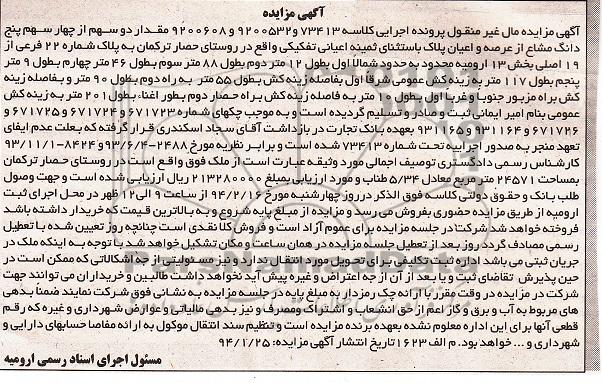 آگهی مزایده
آگهی مزایده مال غیر منقول پرونده اجرایی کلاسه ۷۳۴۱۳ و ۹۲۰۰۵۳۲ و ۹۲۰۰۶۰۸ مقدار دو سهم از چهار سهم پنج
دانگ مشاع از عرصه و اعیان پلاک باستثنای ثمینه اعیانی تفکیکی واقع در روستای حصار ترکمان به پلاک شماره ۲۲ فرعی از
۱۹ اصلی بخش ۱۳ ارومیه محدود به حدود شمالا اول بطول ۱۲ متر دوم بطول ۸۸ متر سوم بطول ۴۶ متر چهارم بطول ۹ متر
پنجم بطول ۱۱۷ متر به زینه کش عمومی شرقا اول بفاصله زینه کش بطول ۵۵ متر به راه دوم بطول ۹۰ متر و بفاصله زینه
کش براه مزبور جنوبا و غربا اول بطول ۱۰ متر به فاصله زینه کش براه حصار دوم بطور اغناء بطول ۲۰۱ متر به زینه کش
عمومی بنام امیر ایمانی ثبت و صادر و تسلیم گردیده است و به موجب چکهای شماره ۶۷۱۷۲۳ و ۶۷۱۷۲۴ و ۶۷۱۷۲۵ و
۶۷۱۷۲۶ و ۹۳۱۱۶۴ و ۹۳۱۱۶۵ بعهده بانک تجارت در بازداشت آقای سجاد اسکندری قرار گرفته که بعلت عدم ایفای
تعهد منجر به صدور اجراییه تحت شماره ۷۳۴۱۳ شده است و برابر نظریه مورخ ۲۴۸۸-۹۳/۶/۴ و ۸۴۲۴-۹۳/۱۱/۱
کارشناس رسمی دادگستری توصیف اجمالی مورد وثیقه عبارت است از ملک فوق واقع است در روستای حصار ترکمان
بمساحت ۲۴۵۷۱ متر مربع معادل ۵/۳۴ طناب و مورد ارزیابی بمبلغ ۲۱۳۲۸۰۰۰۰ ریال ارزیابی شده است و جهت وصول
طلب بانک و حقوق دولتی کلاسه فوق الذکر در روز چهارشنبه مورخ ۹۴/۲/۱۶ از ساعت ۹ الی ۱۲ ظهر در محل اجرای ثبت
ارومیه از طریق مزایده حضوری بفروش می رسد و مزایده از مبلغ پایه شروع و به بالاترین قیمت که خریدار داشته باشد
فروخته خواهد شد شرکت در جلسه مزایده برای عموم آزاد است و فروش کلا نقدی است چنانچه روز تعیین شده با تعطیل
رسمی مصادف گردد روز بعد از تعطیل جلسه مزایده در همان ساعت و مکان تشکیل خواهد شد با توجه به اینکه ملک در
جریان ثبتی می باشد اداره ثبت تکلیفی برای تحویل مورد انتقال ندارد و نیز مسئولیتی از جه اشکالاتی که ممکن است در
حین پذیرش تقاضای ثبت و یا بعد از آن از جه اعتراض و غیره پیش آید نخواهد داشت طالبین و خریداران می توانند جهت
شرکت در مزایده در وقت مقرر با ارائه چک رمزدار به مبلغ پایه در جلسه مزایده به نشانی فوق شرکت نمایند ضمنا بدهی
های مربوط به آب و برق و گاز اعم از حق انشعاب و اشتراک و مصرف و نیز بدهی مالیاتی و عوارض شهرداری و غیره که رقم
قطعی آنها برای این اداره معلوم نشده بعهده برنده مزایده است و تنظیم سند انتقال موکول به ارائه مفاصا حسابهای دارایی و
شهرداری و ... خواهد بود. م الف ۱۶۲۳ تاریخ انتشار آگهی مزایده: ۹۴/۱/۲۵
مسئول اجرای اسناد رسمی ارومیه